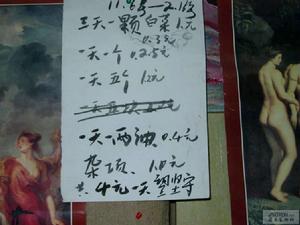 11.25—2.18
三天一颗白菜1元
0.3元
一天一个0.25元
一天五个1元
一天一两油0.4元
杂项 1.0元
共4元一天望坚守